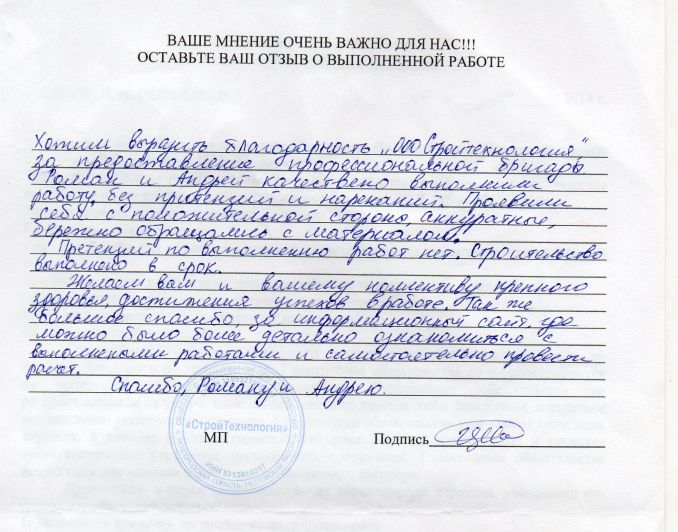 ВАШЕ МНЕНИЕ ОЧЕНЬ ВАЖНО ДЛЯ НАС!!!
ОСТАВЬТЕ ВАШ ОТЗЫВ О ВЫПОЛНЕННОЙ РАБОТЕ
Хотим выразить благодарность „ООО Стройтехнология“
за предоставление профессиональной бригады
Роман и Андрей качествено выполнили
работу, без притензий и нареканий. Проявили
себя с положительной стороны, аккуратные,
бережно обращались с материалом.
Претензий по выполнению работ нет. Строительство
выполнено в срок.
Желаем вам и вашему коллективу крепкого
здоровья, достижения успехов в работе. Так же
большое спасибо, за информационный сайт, где
можно было более детально ознакомиться с
выполнеными работами и самостоятельно провести
расчет.
Спасибо, Роману и Андрею.
«СтройТехнология»
МП
Подпись